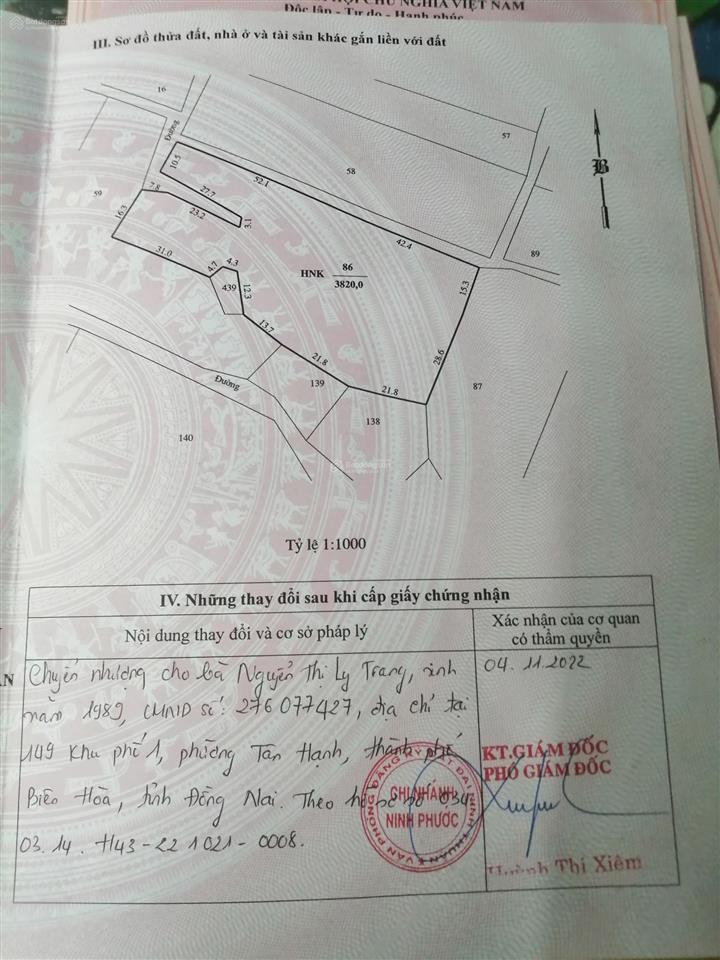 HỘI CHỦ NGHĨA VIỆT NAM
Độc lập - Tự do - Hạnh phúc
III. Sơ đồ thửa đất, nhà ở và tài sản khác gắn liền với đất
16
Đường
57
58
59
10.5
52.1
27.7
7.8
23.2
3.1
16.3
42.4
B
89
31.0
4.7
4.3
439
12.3
HNK
86
3820,0
15.3
13.7
28.6
21.8
21.8
87
Đường
139
138
140
Tỷ lệ 1:1000
IV. Những thay đổi sau khi cấp giấy chứng nhận
Nội dung thay đổi và cơ sở pháp lý
Xác nhận của cơ quan
có thẩm quyền
Chuyển nhượng cho bà Nguyễn Thị Ly Trang, sinh
năm 1989, CMND số: 276077427, địa chỉ tại
149 Khu phố 1, phường Tân Hạnh, thành phố
Biên Hòa, tỉnh Đồng Nai. Theo hồ sơ số 034
03.14. H43-221021-0008.
04.11.2022
KT.GIÁM ĐỐC
PHÓ GIÁM ĐỐC
VĂN PHÒNG ĐĂNG KÝ ĐẤT ĐAI NINH THUẬN
CHI NHÁNH
NINH PHƯỚC
Huỳnh Thị Xiêm